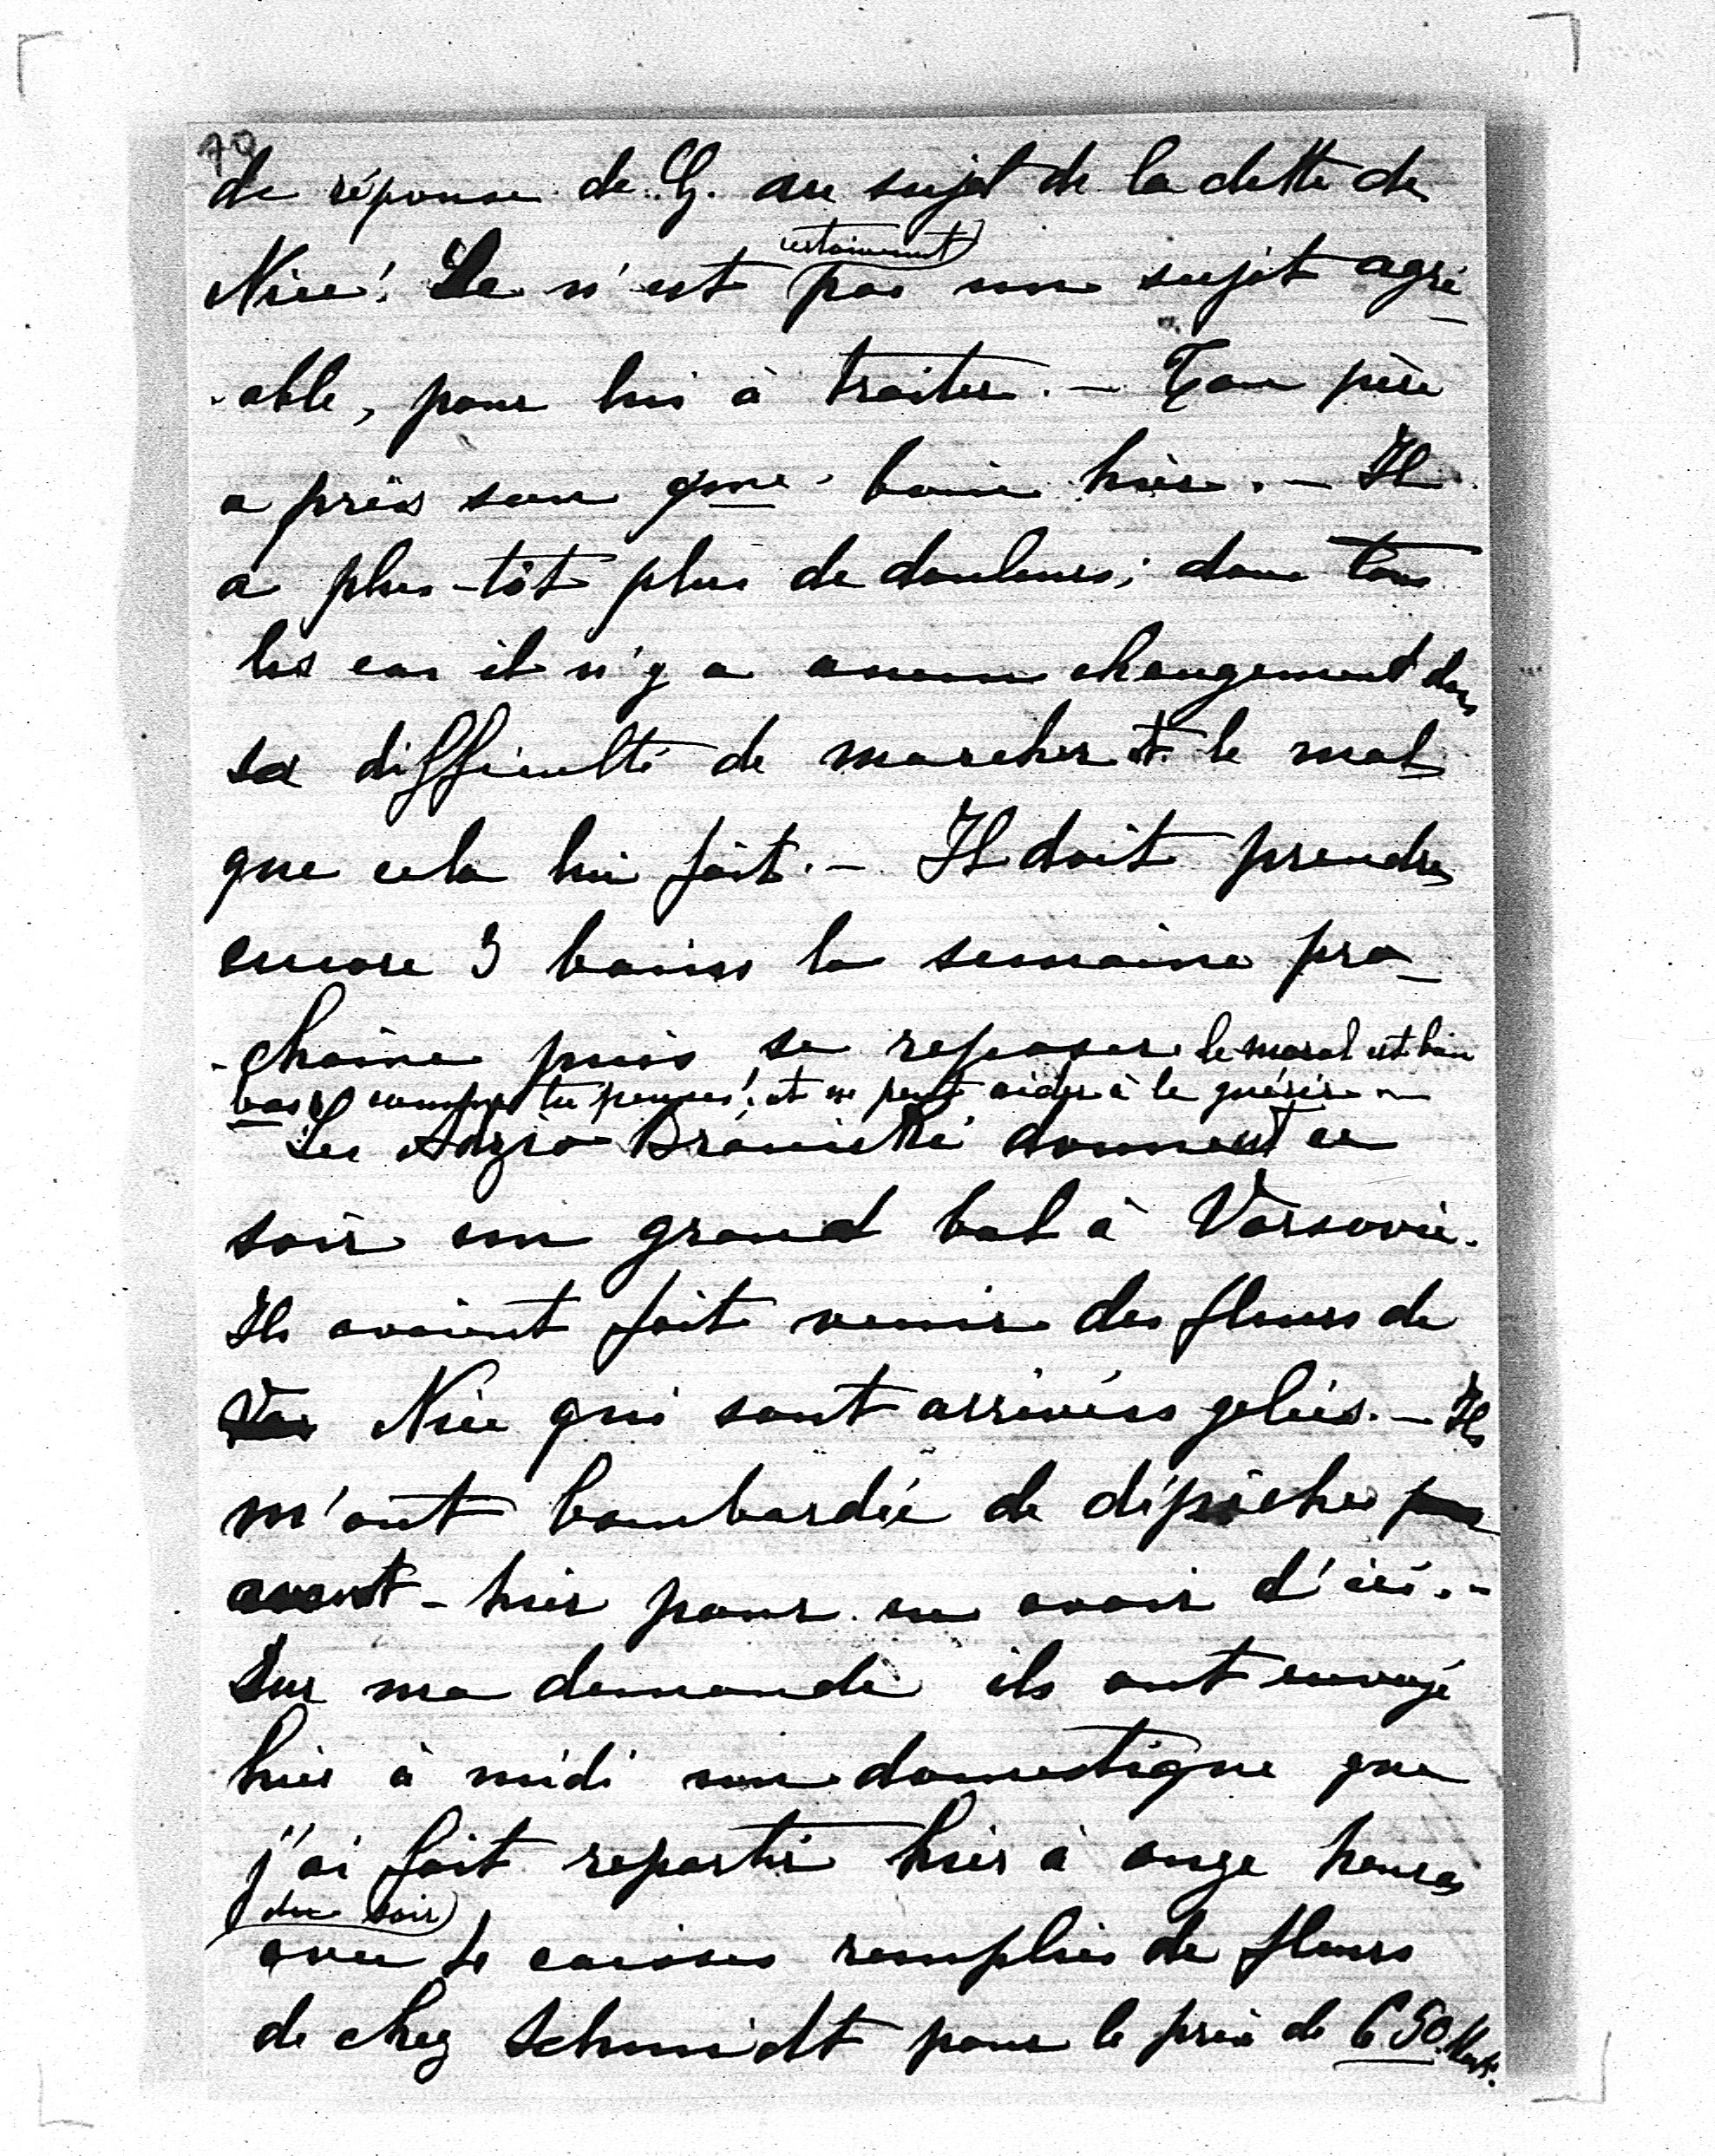 70
de réponse de G. au sujet de la dette de
Nice! Ce n'est certainement pas un sujet agré-
-able, pour lui à traiter. — Ton père
a pris son 9me bain hier. — Il
a plus-tôt plus de douleurs; dans tous
les cas il n'y a aucun changement dans
sa difficulté de marcher et le mal
que cela lui fait. — Il doit prendre
encore 3 bains la semaine pro-
-chaine puis se reposer le moral est bien
bas comme tu penses! et ne peut aider à le guérir —
Les donnent ce
soir un grand bal à Varsovie.
Ils avaient fait venir des fleurs de
Nice qui sont arrivées gelées. — Ils
m'ont bombardée de dépêches
avant-hier pour en avoir d'ici. —
Sur ma demande ils ont envoyé
hier à midi un domestique que
j'ai fait repartir hier à onze heures
(du soir)
avec caisses remplies de fleurs
de chez Schmidt pour le prix de 650 Mark.